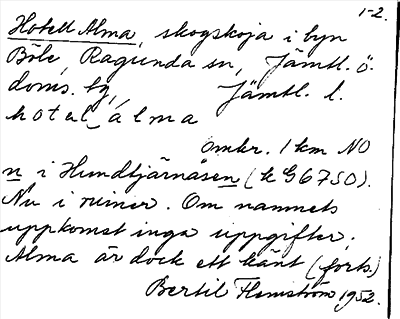 1-2.
Hotell Alma, skogskoja i byn
Böle, Ragunda sn, Jämtl. ö.
doms. hg, Jämtl. l.
hotal álma
omkr. 1 km NO
n i Hundtjärnåsen (k G6750).
Nu i ruiner. Om namnets
uppkomst inga uppgifter.
Alma är dock ett känt (forts)
Bertil Flemström 1952.